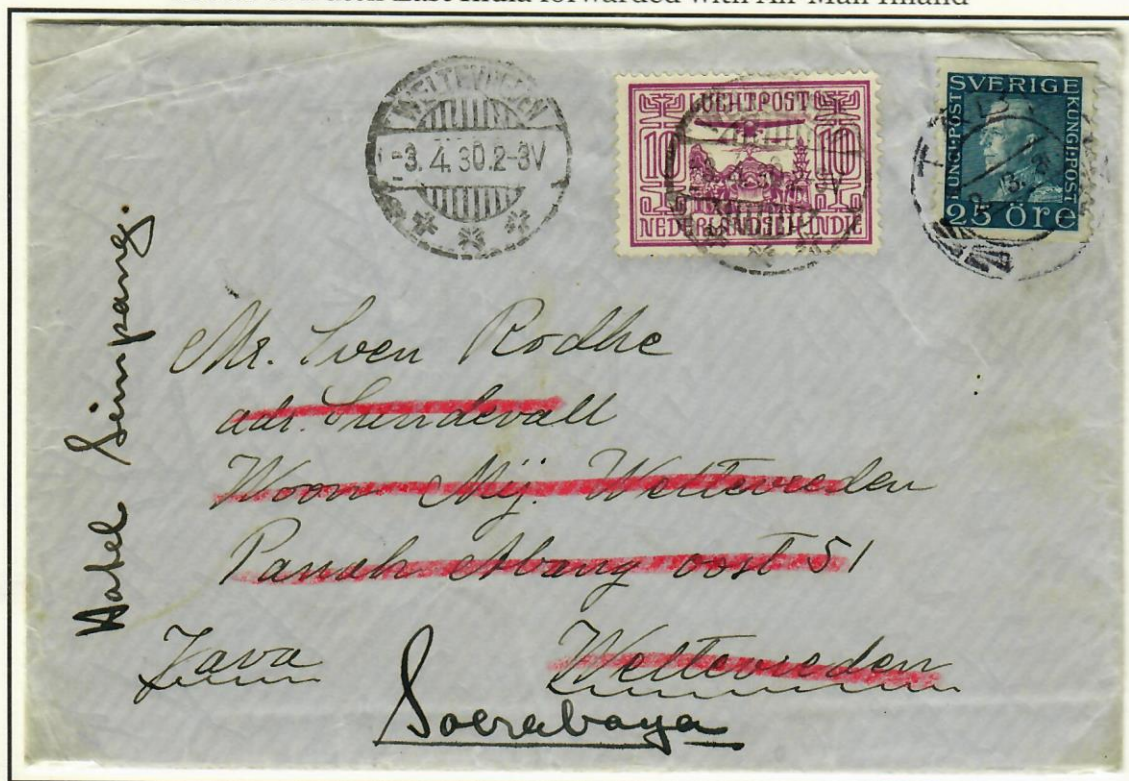 East India forwarded with Air Mail Inland
WELTEVREDEN
-3. 4. 30. 2-3V
LUCHTPOST
10 10
NEDERLANDSCH-INDIE
SVERIGE
KUNGL·POST KUNGL·POST
25 öre
Hotel Simpang.
Mr. Sven Rodhe
adr. Sundevall
Woon Mij. Weltevreden
Panah Abang oost 51
Java Weltevreden
Soerabaya